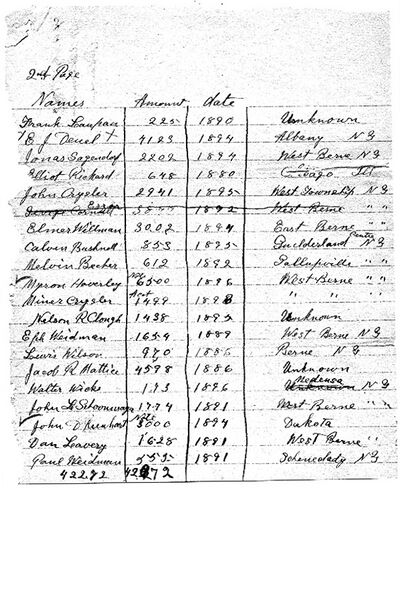 2nd Page
Names Amount date
Frank 225 1890 Unknown
X E J Deuel X 4123 1894 Albany N Y
Jonas Sagendorf 2202 1894 West Berne N Y
Elliot Rickard 648 1880 Ill
John Crysler 2941 1895 West Township N Y
George Cornell 1892 West Berne " "
Elmer Willman 3002 1894 East Berne " "
Calvin Bushnell 853 1895 Guilderland Centre N Y
Melvin Becker 612 1892 Gallupville " "
Myron Haverley Note 6500 1896 West Berne " "
Miner Crysler Acct 1499 1898 " " "
Nelson R Clough 1438 1895 Unknown
Eph Weidman 1659 1889 West Berne N Y
Lewis Wilson 970 1886 Berne N Y
Jacob R Mattice 4598 1886 Unknown
Walter Wicks 193 1896 Unknown Medusa N Y
John L Schoonmaker 1774 1891 West Berne " "
John D Rinehart Note 1894 Dakota
Dan Leavery 1628 1891 West Berne " "
Paul Weidman 555 1891 Schenectady N Y
42272 42272